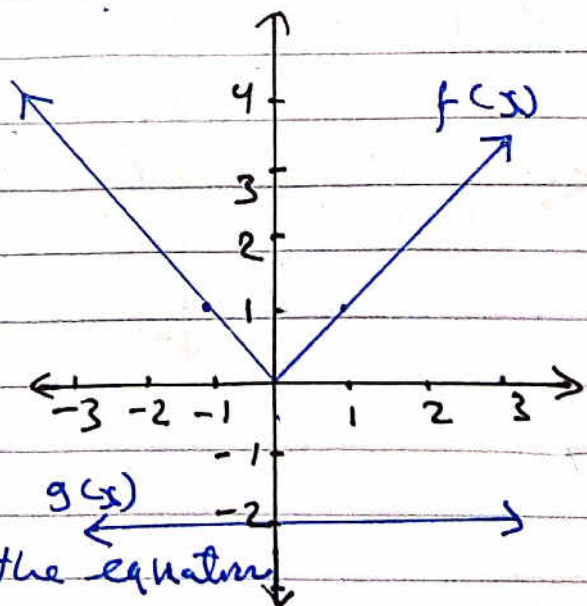 4
f(x)
3
2
1
-3 -2 -1 1 2 3
-1
g(x)
-2
the equation